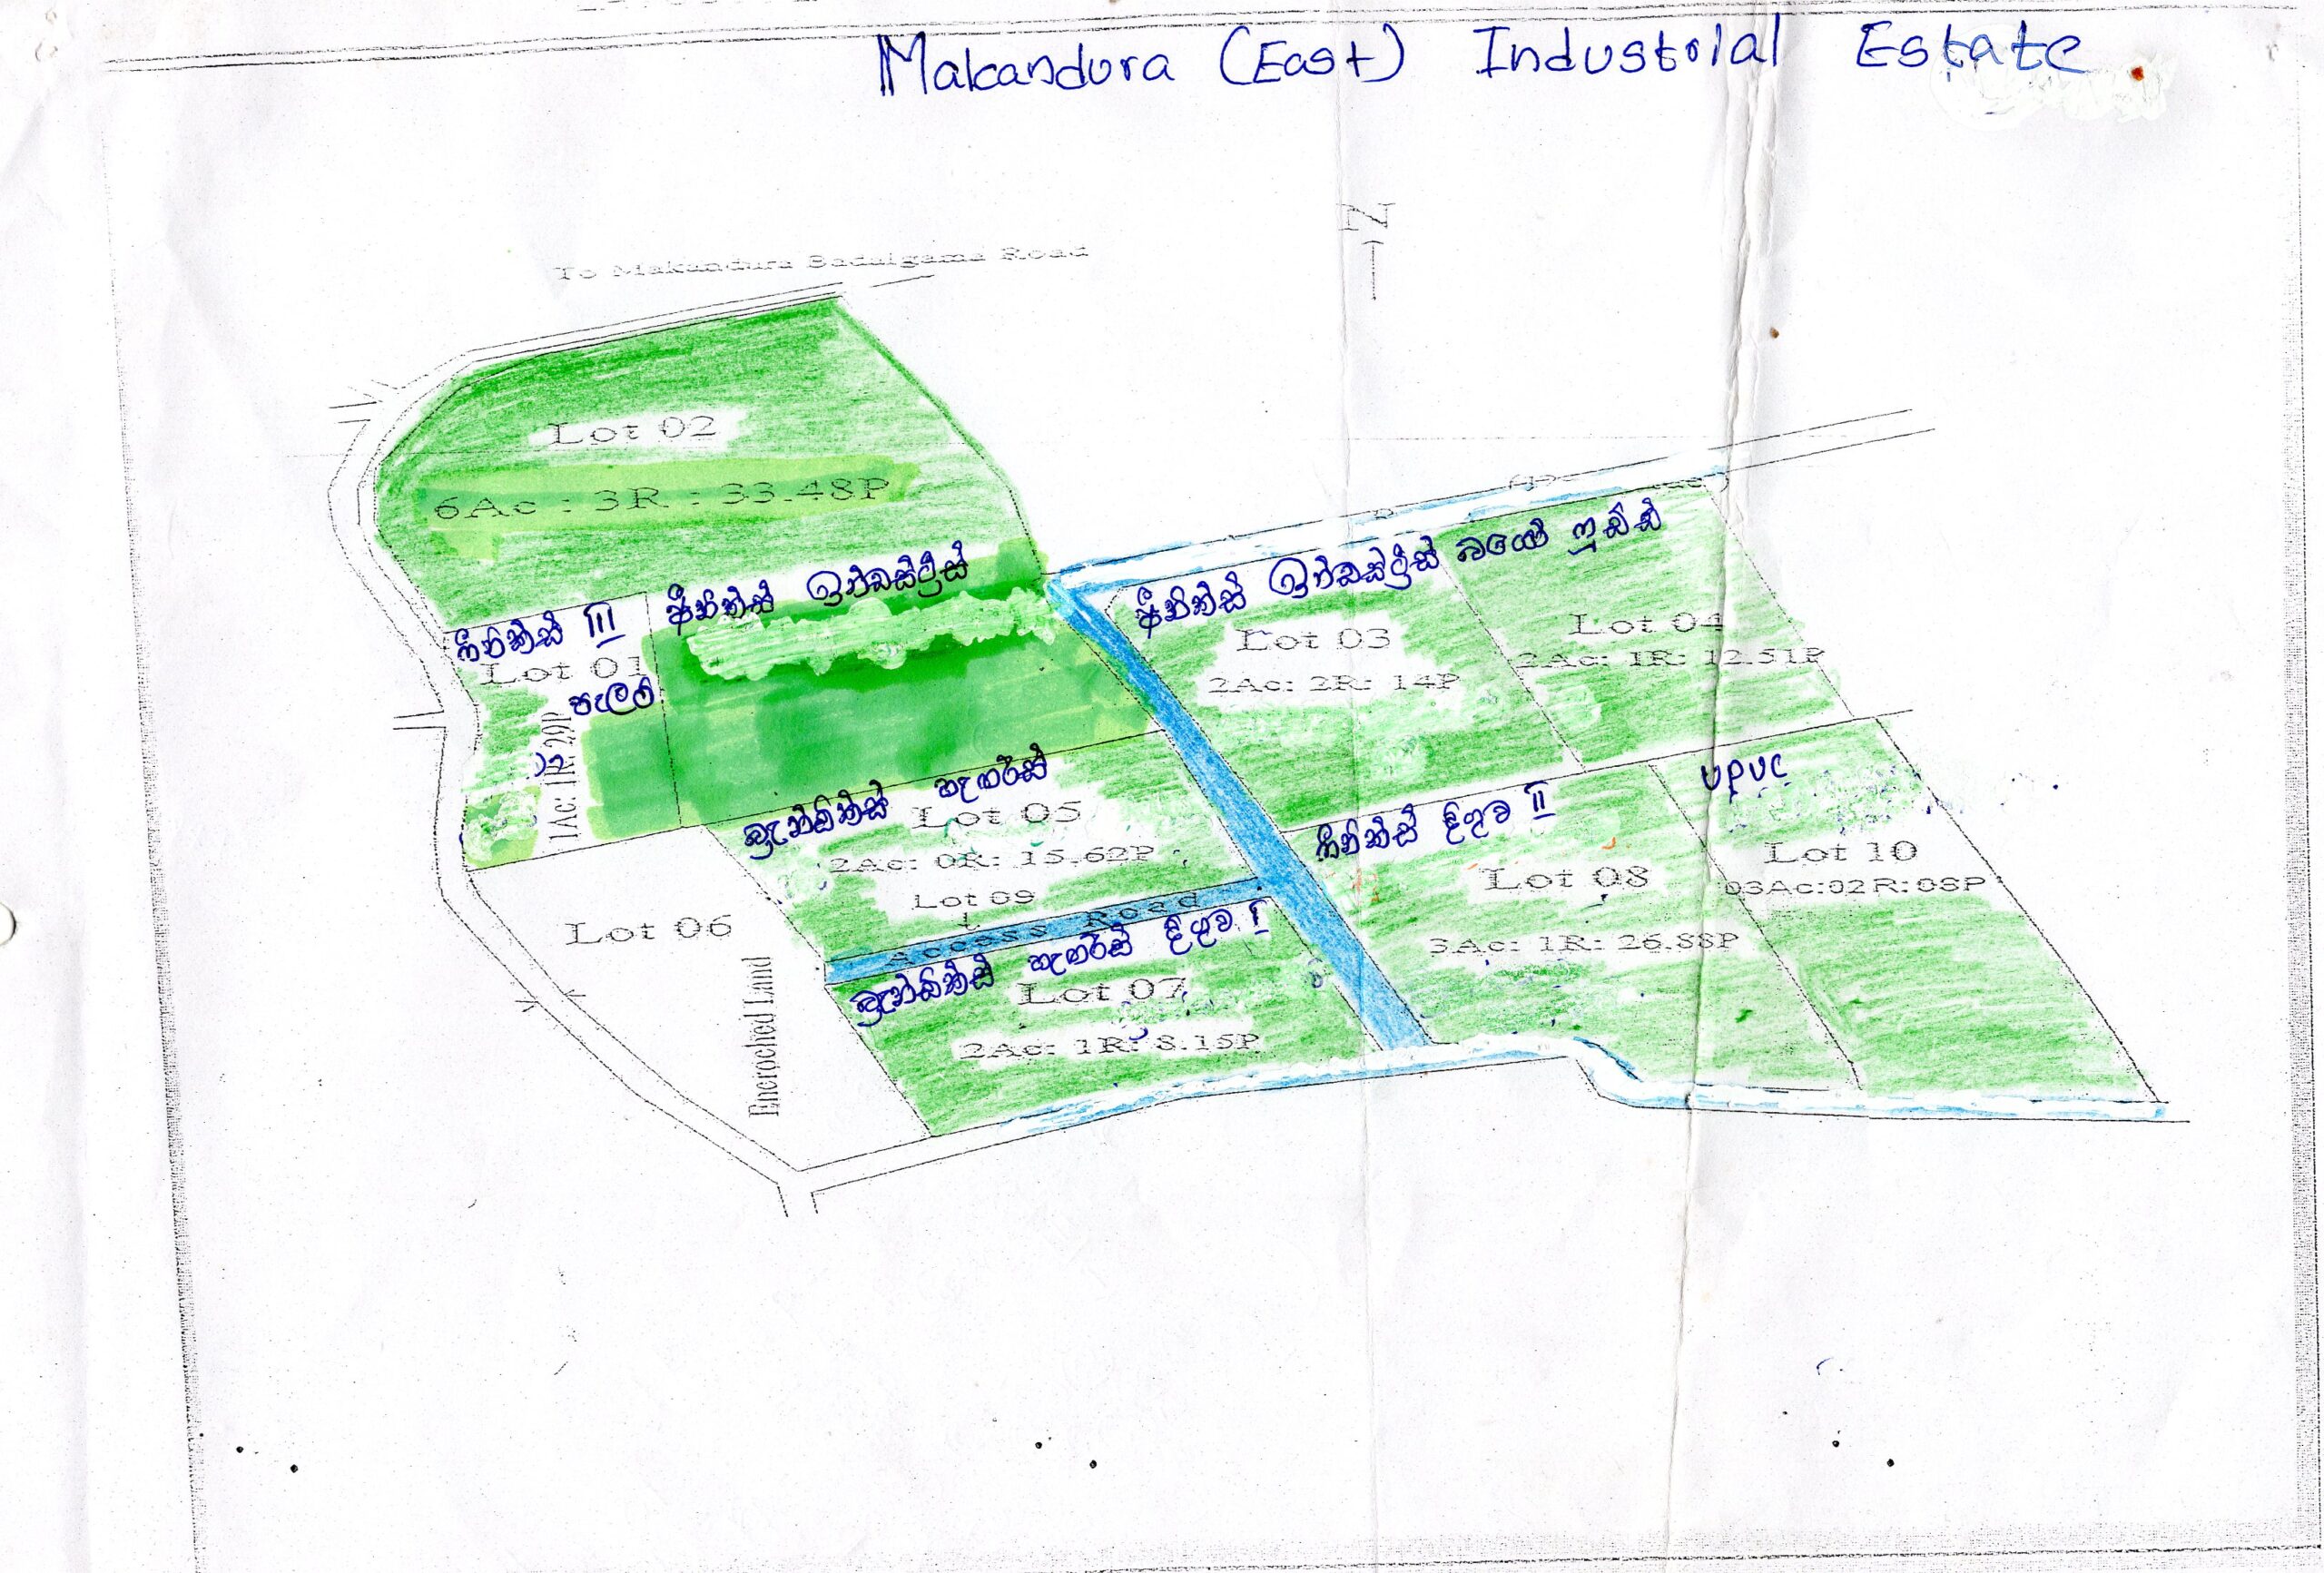 Makandura (East) Industrial Estate
N
To Makandura Badalgama Road
Lot 02
6Ac : 3R : 33.48P
ෆීනික්ස් III
Lot 01
පැලවි
1Ac: 1R: 29P
ෆීනික්ස් ඉන්ඩස්ට්‍රීස්
ෆීනික්ස් ඉන්ඩස්ට්‍රීස්
Lot 03
2Ac: 2R: 14P
ෆුඩ්ස්
Lot 04
2Ac: 1R: 12.51P
බ්‍රැන්ඩික්ස් හැඟර්ස්
Lot 05
2Ac: 0R: 15.62P
Lot 09
Access Road
Lot 06
Encroched Land
බ්‍රැන්ඩික්ස් හැඟර්ස් දිගුව I
Lot 07
2Ac: 1R: 8.15P
ෆීනික්ස් දිගුව II
Lot 08
3Ac: 1R: 26.88P
UPVC
Lot 10
03Ac:02R:08P